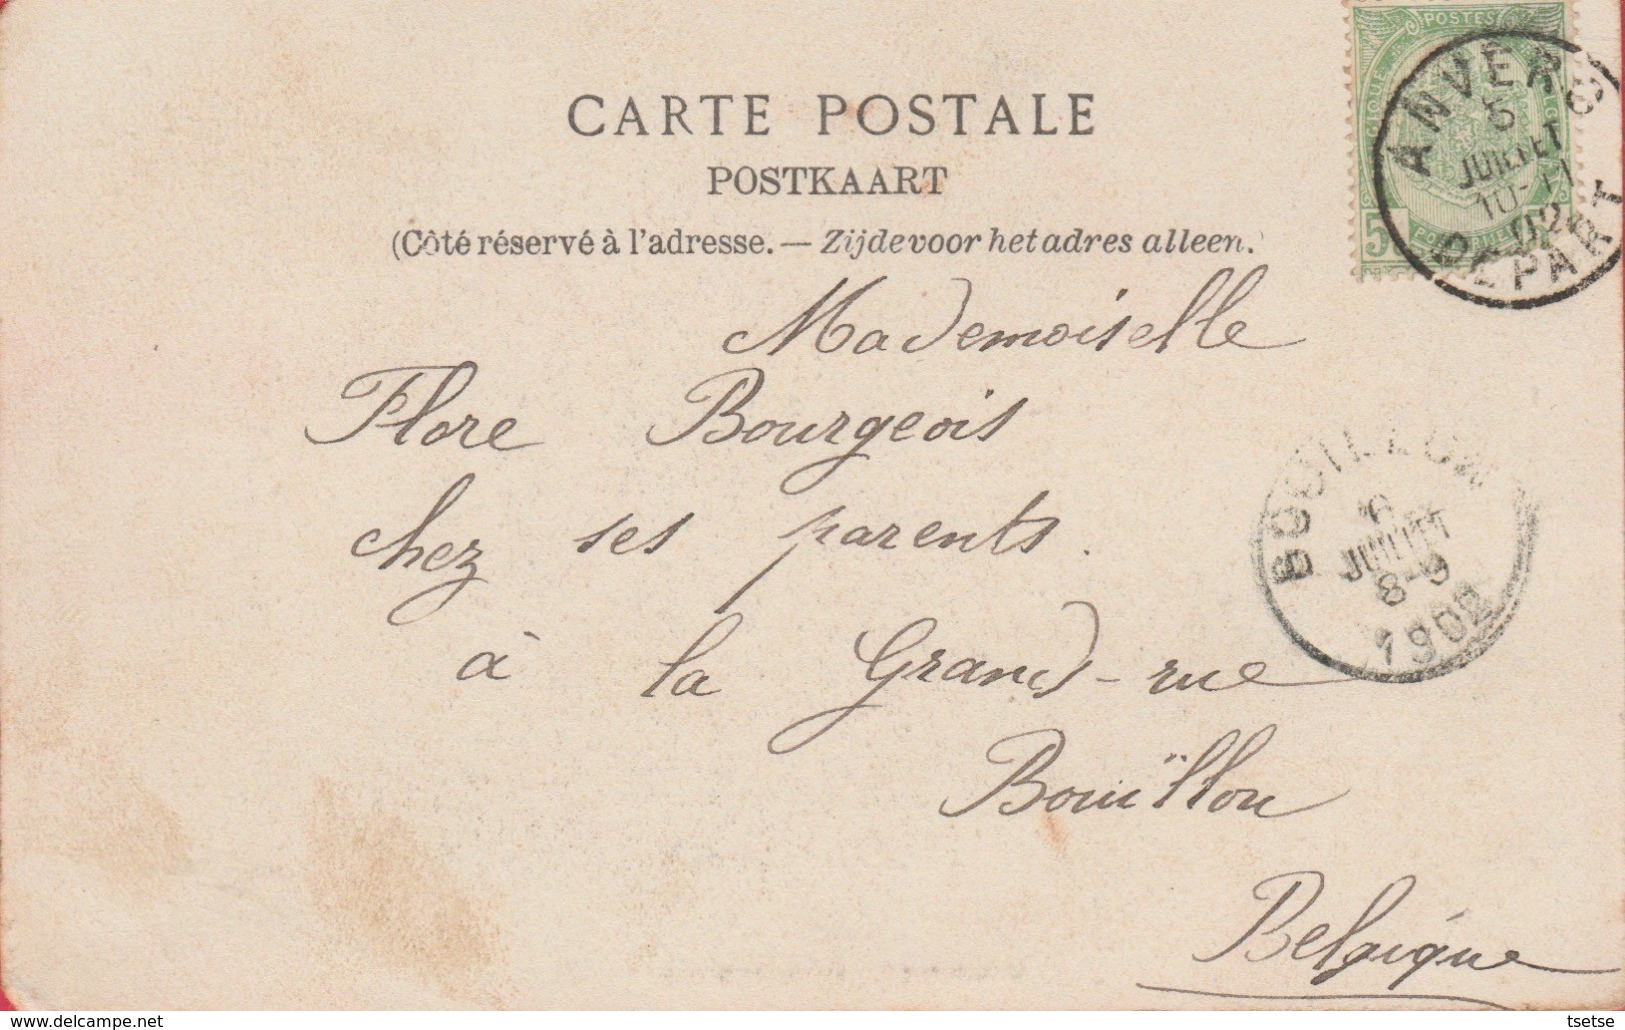 CARTE POSTALE
POSTKAART
(Côté réservé à l'adresse. — Zijde voor het adres alleen.)
POSTES
5
ANVERS
5
JUILLET
10-11
02
DEPART
Mademoiselle
Flore Bourgeois
chez ses parents.
à la Grand-rue
Bouïllon
Belgique
BOUILLON
6
JUILLET
8-9
1902
delcampe.net
tsetse